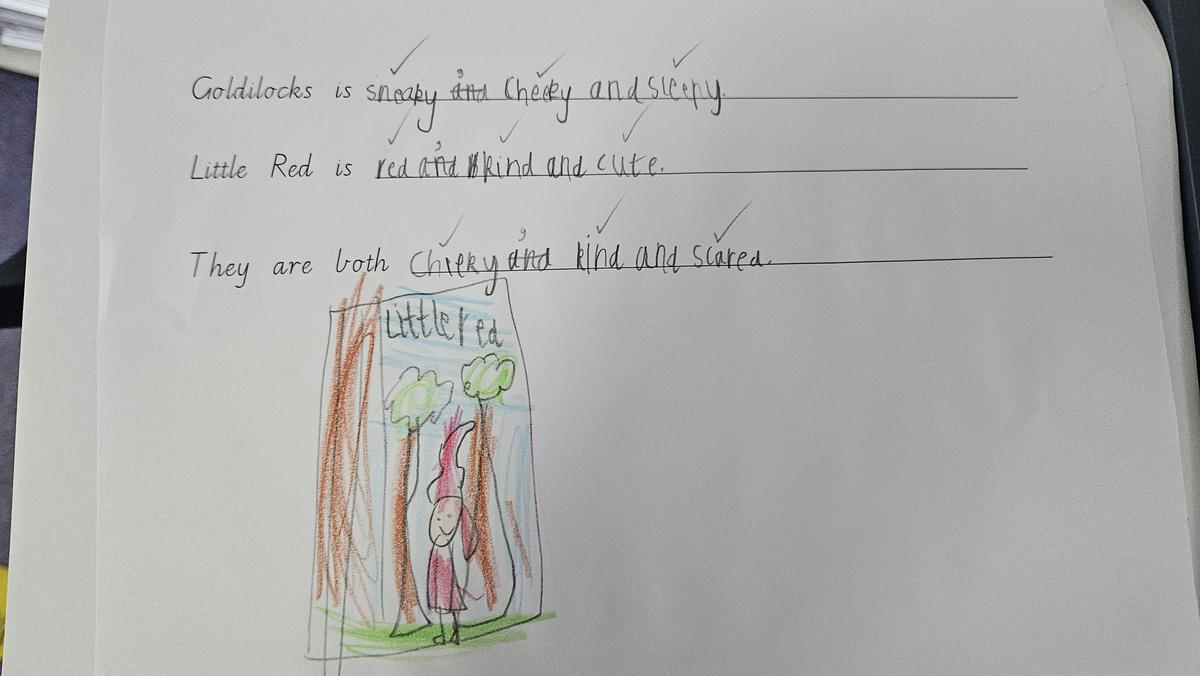 Goldilocks is sneaky, Cheeky and sleepy.
Little Red is red, kind and cute.
They are both Cheeky, kind and scared.
Little red